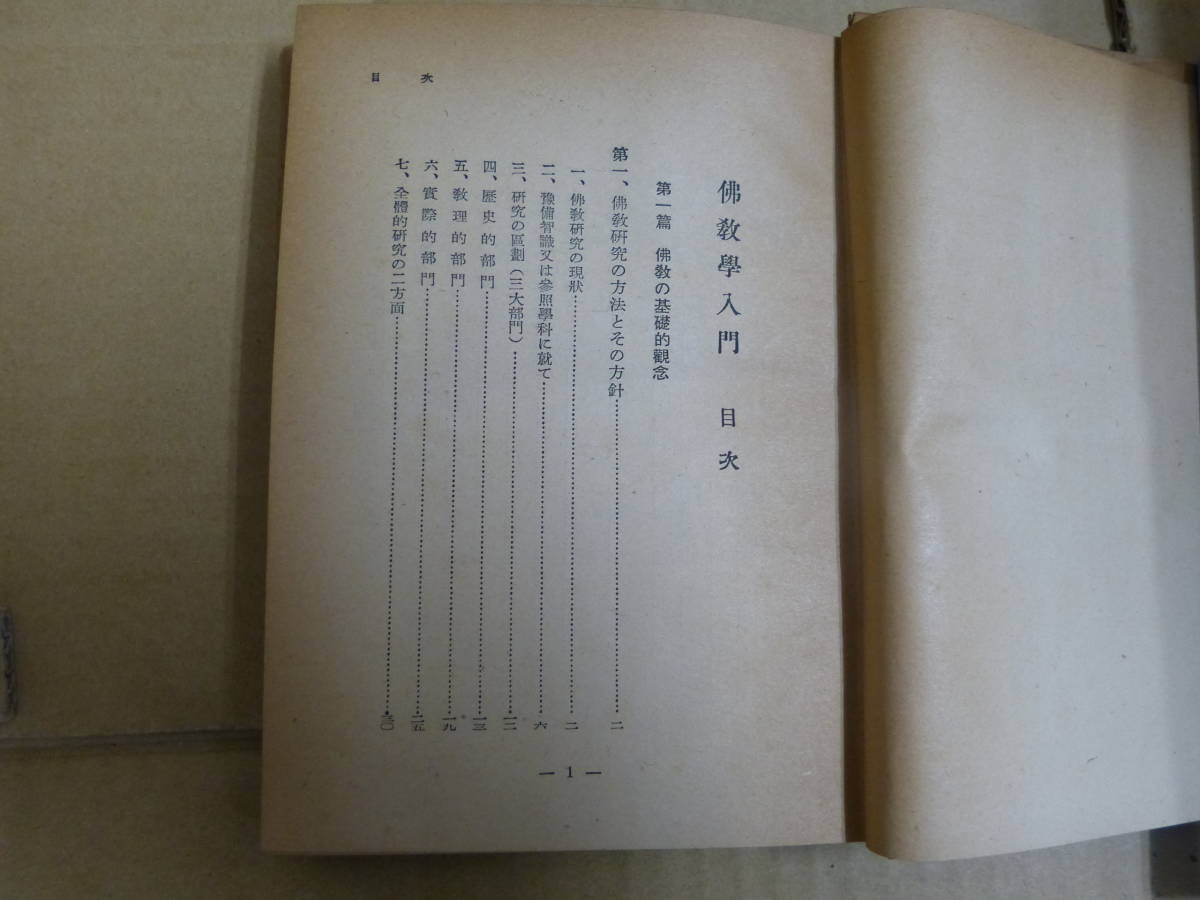 佛敎學入門 目次
第一篇 佛敎の基礎的觀念
第一、佛敎硏究の方法とその方針……二
一、佛敎硏究の現狀……二
二、豫備智識又は參照學科に就て……六
三、硏究の區劃(三大部門)……一二
四、歷史的部門……一三
五、敎理的部門……一九
六、實際的部門……二五
七、全體的硏究の二方面……三〇
目次
— 1 —